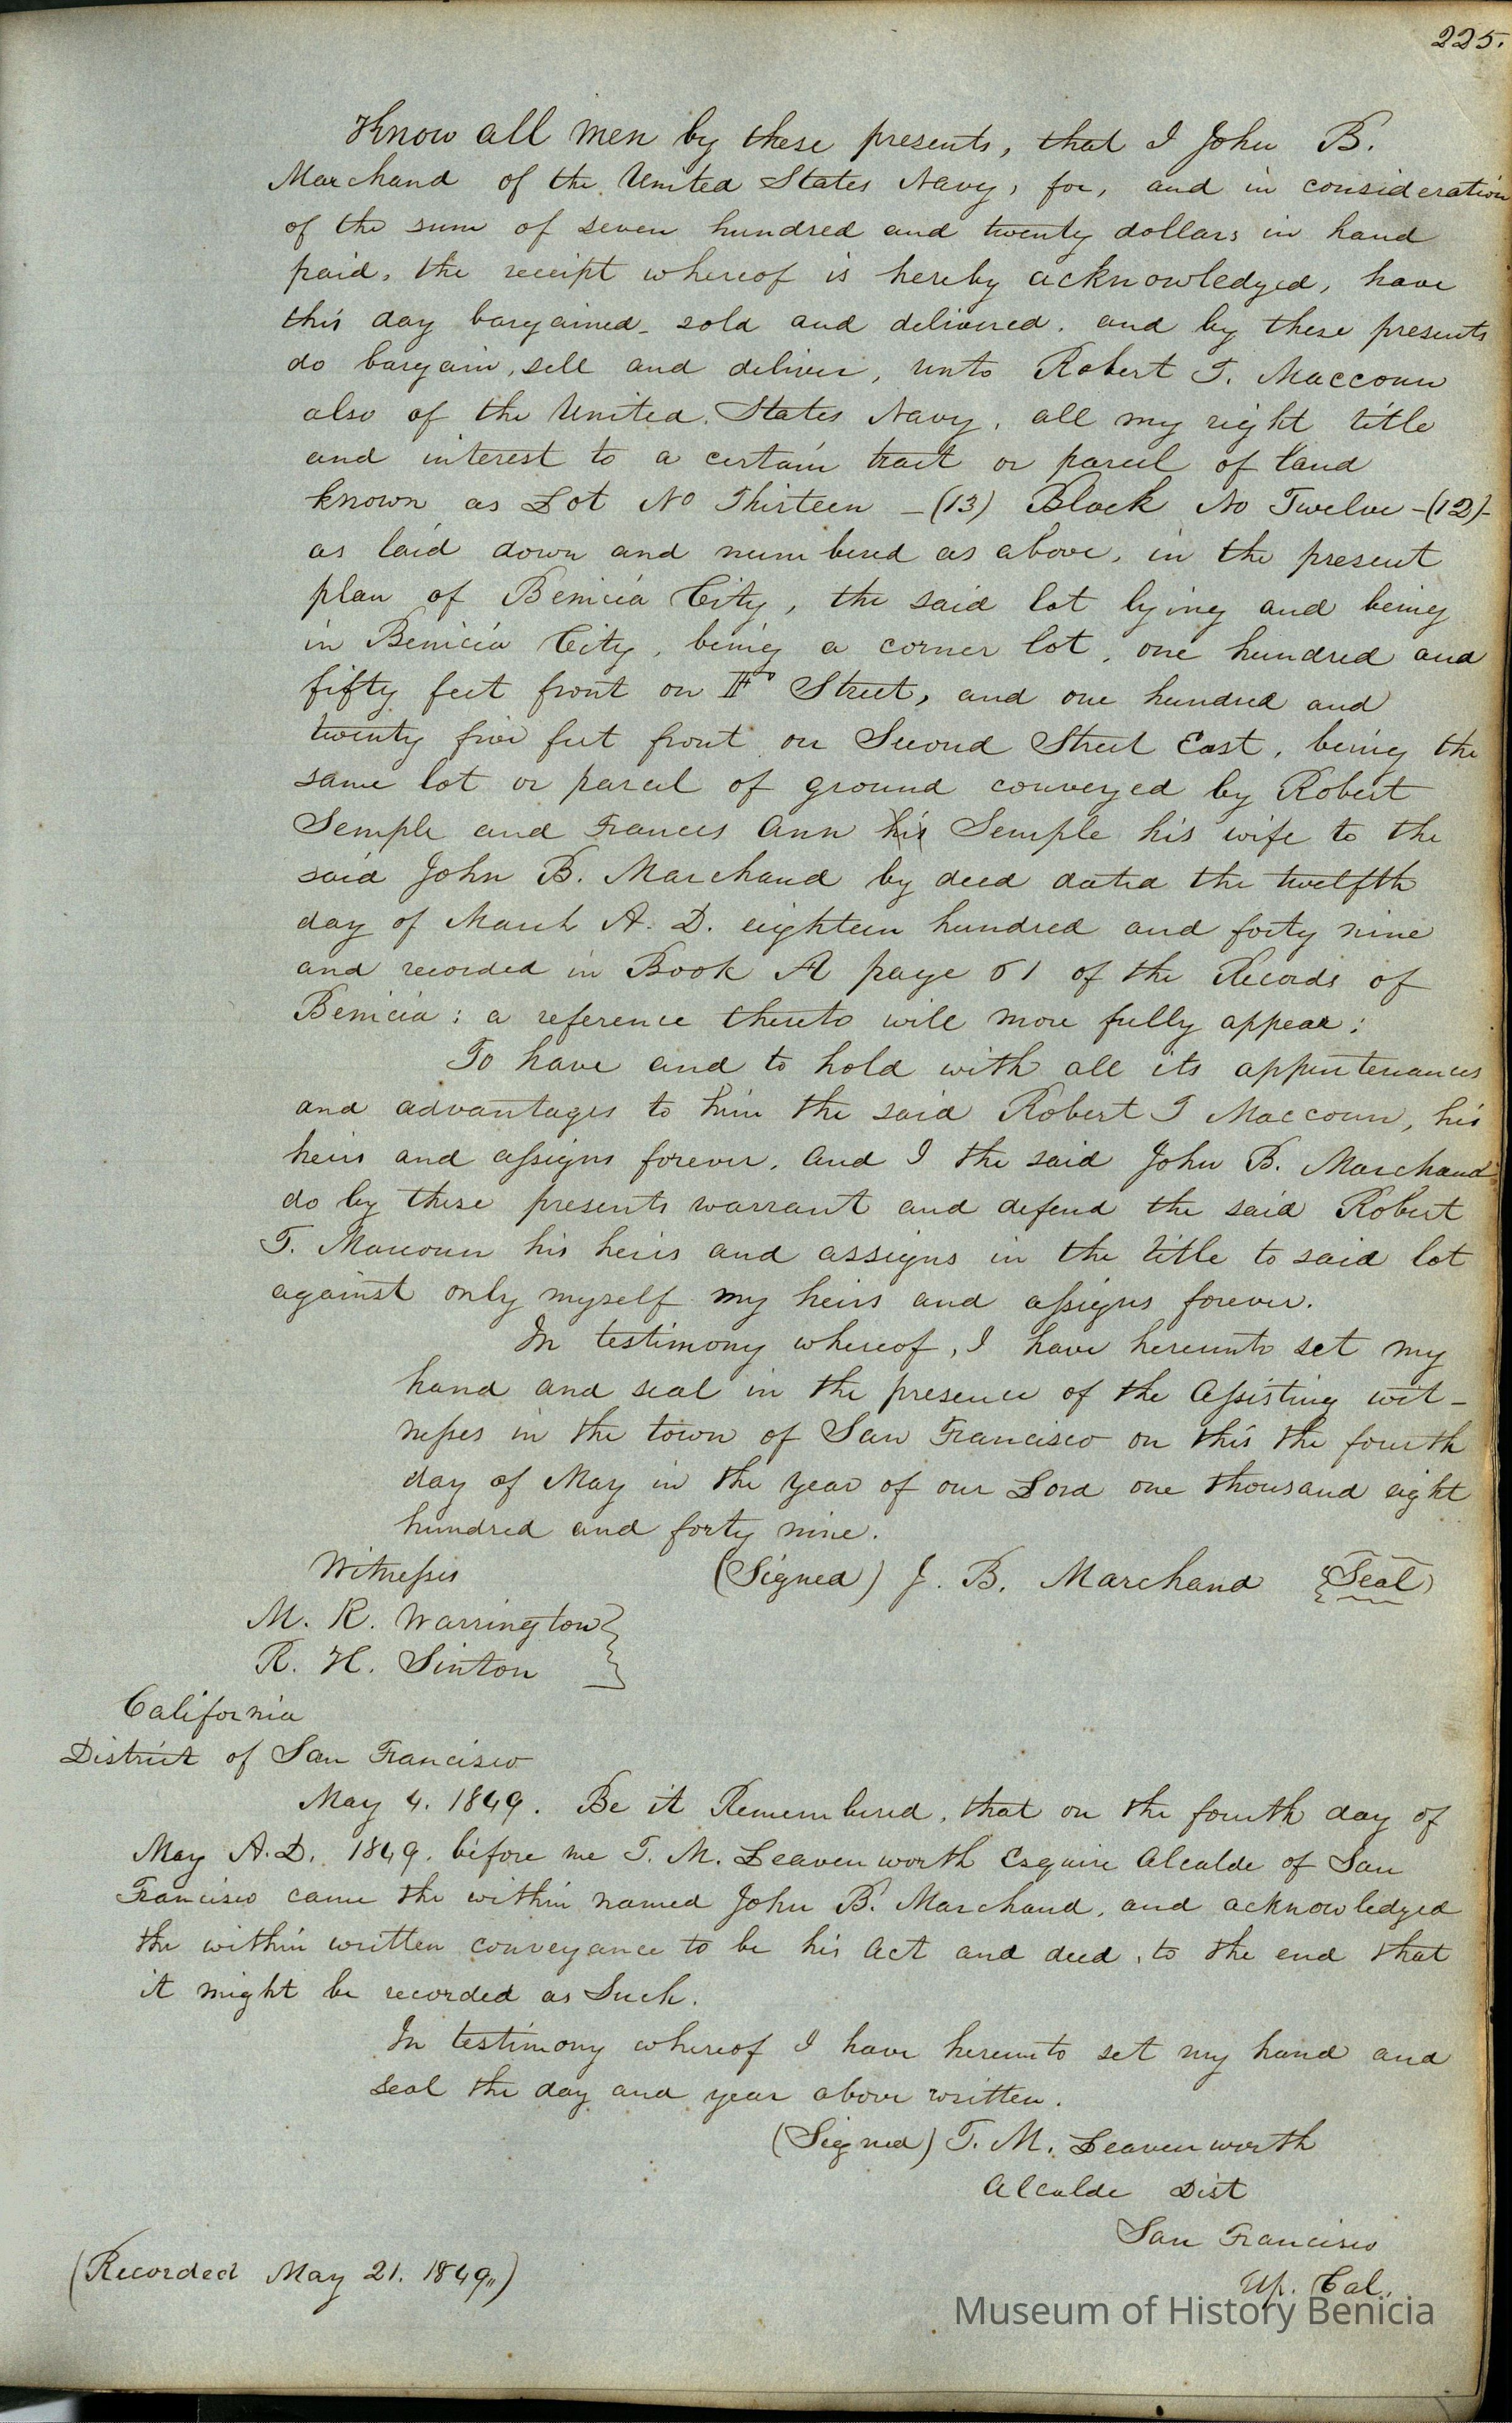 225.
Know all men by these presents, that I John B.
Marchand of the United States Navy, for, and in consideration
of the sum of seven hundred and twenty dollars in hand
paid, the receipt whereof is hereby acknowledged, have
this day bargained, sold and delivered, and by these presents
do bargain, sell and deliver, unto Robert T. Maccoun
also of the United States Navy, all my right title
and interest to a certain tract or parcel of land
known as Lot No Thirteen -(13) Block No Twelve -(12)-
as laid down and numbered as above, in the present
plan of Benicia City, the said lot lying and being
in Benicia City, being a corner lot, one hundred and
fifty feet front on Street, and one hundred and
twenty five feet front on Second Street East, being the
same lot or parcel of ground conveyed by Robert
Semple and Frances Ann his Semple his wife to the
said John B. Marchand by deed dated the twelfth
day of March A. D. eighteen hundred and forty nine
and recorded in Book A page 61 of the Records of
Benicia: a reference thereto will more fully appear:
To have and to hold with all its appurtenances
and advantages to him the said Robert T Maccoun, his
heirs and assigns forever. And I the said John B. Marchand
do by these presents warrant and defend the said Robert
T. Maccoun his heirs and assigns in the title to said lot
against only myself my heirs and assigns forever.
In testimony whereof, I have hereunto set my
hand and seal in the presence of the Assisting wit-
nesses in the town of San Francisco on this the fourth
day of May in the year of our Lord one thousand eight
hundred and forty nine.
Witnesses (Signed) J. B. Marchand {Seal}
M. R. Warrington
R. H. Sinton
California
District of San Francisco
May 4. 1849. Be it Remembered, that on the fourth day of
May A.D. 1849. before me T. M. Leavenworth Esquire Alcalde of San
Francisco came the within named John B. Marchand, and acknowledged
the within written conveyance to be his Act and deed, to the end that
it might be recorded as Such.
In testimony whereof I have hereunto set my hand and
seal the day and year above written.
(Signed) T. M. Leavenworth
Alcalde Dist
San Francisco
Up. Cal.
(Recorded May 21. 1849,,)
Museum of History Benicia